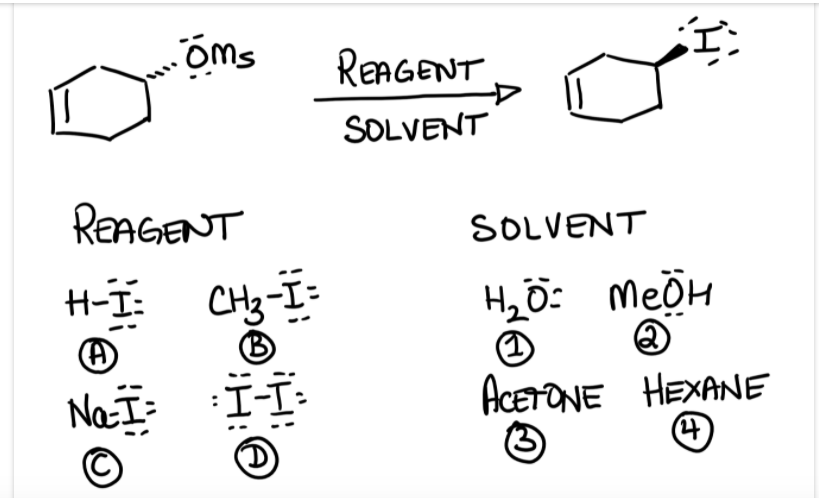 OMs
I
REAGENT
SOLVENT
REAGENT
SOLVENT
H-I
CH3-I
H2O
MeOH
A
B
1
2
Na-I
I-I
ACETONE
HEXANE
C
D
3
4